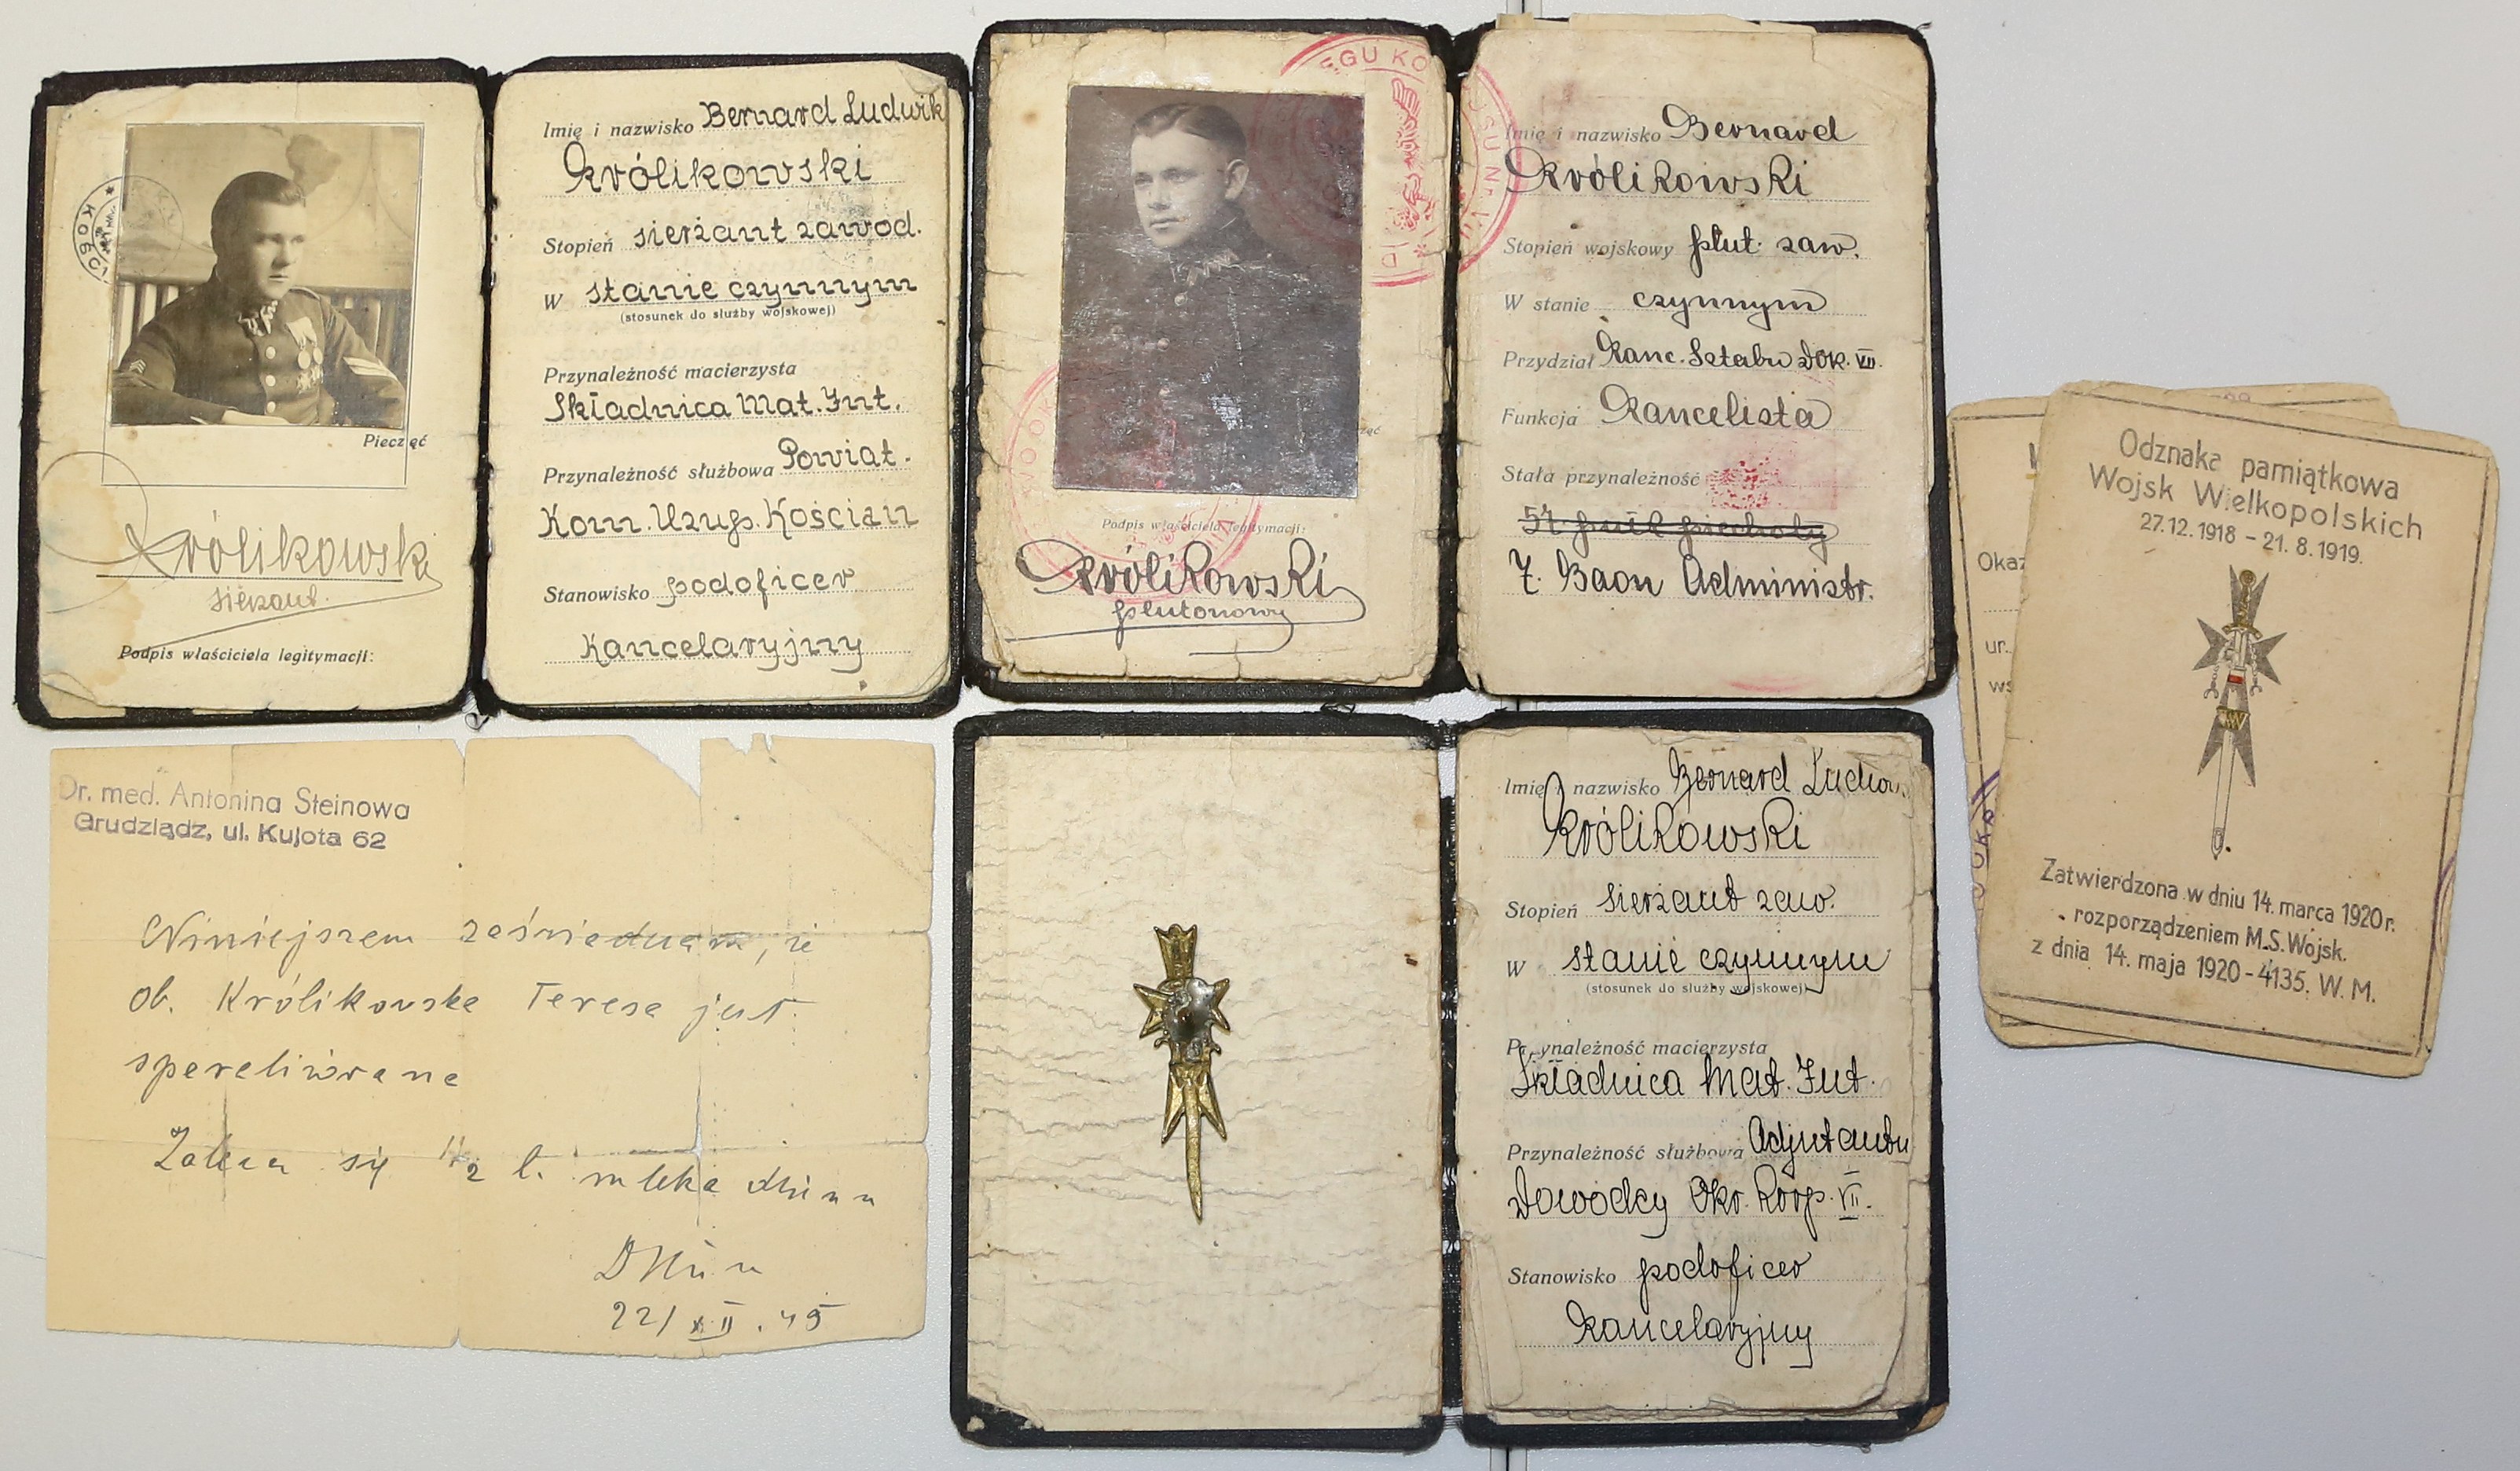 KOŚC
Pieczęć
Królikowski
sierżant.
Podpis właściciela legitymacji:
Imię i nazwisko Bernard Ludwik
Królikowski
Stopień sierżant zawod.
W stanie czynnym
(stosunek do służby wojskowej)
Przynależność macierzysta
Składnica Mat. Int.
Przynależność służbowa Powiat.
Kom. Uzup. Kościan
Stanowisko podoficer
Kancelaryjny
EGU KO
SU Nr. VII
Podpis właściciela legitymacji:
Królikowski
plutonowy
Imię i nazwisko Bernard
Królikowski
Stopień wojskowy plut. zaw.
W stanie czynnym
Przydział Kanc. Sztabu DOK. VII.
Funkcja Kancelista
Stała przynależność
57. pułk piechoty
7. Baon Administr.
Dr. med. Antonina Steinowa
Grudziądz, ul. Kujota 62
Niniejszem zaświadczam, że
ob. Królikowska Teresa jest
Zaleca się 1/2 l. mleka
22/XII.45
Imię i nazwisko Bernard
Królikowski
Stopień sierżant zaw.
W stanie czynnym
(stosunek do służby wojskowej)
Przynależność macierzysta
Składnica Mat. Int.
Przynależność służbowa Adjutantu
Dowódcy Okr. Korp. VII.
Stanowisko podoficer
Kancelaryjny
Okaz
ur.
ws
Odznaka pamiątkowa
Wojsk Wielkopolskich
27.12.1918 – 21.8.1919.
Zatwierdzona w dniu 14. marca 1920 r.
rozporządzeniem M.S.Wojsk.
z dnia 14. maja 1920 - 4135. W. M.